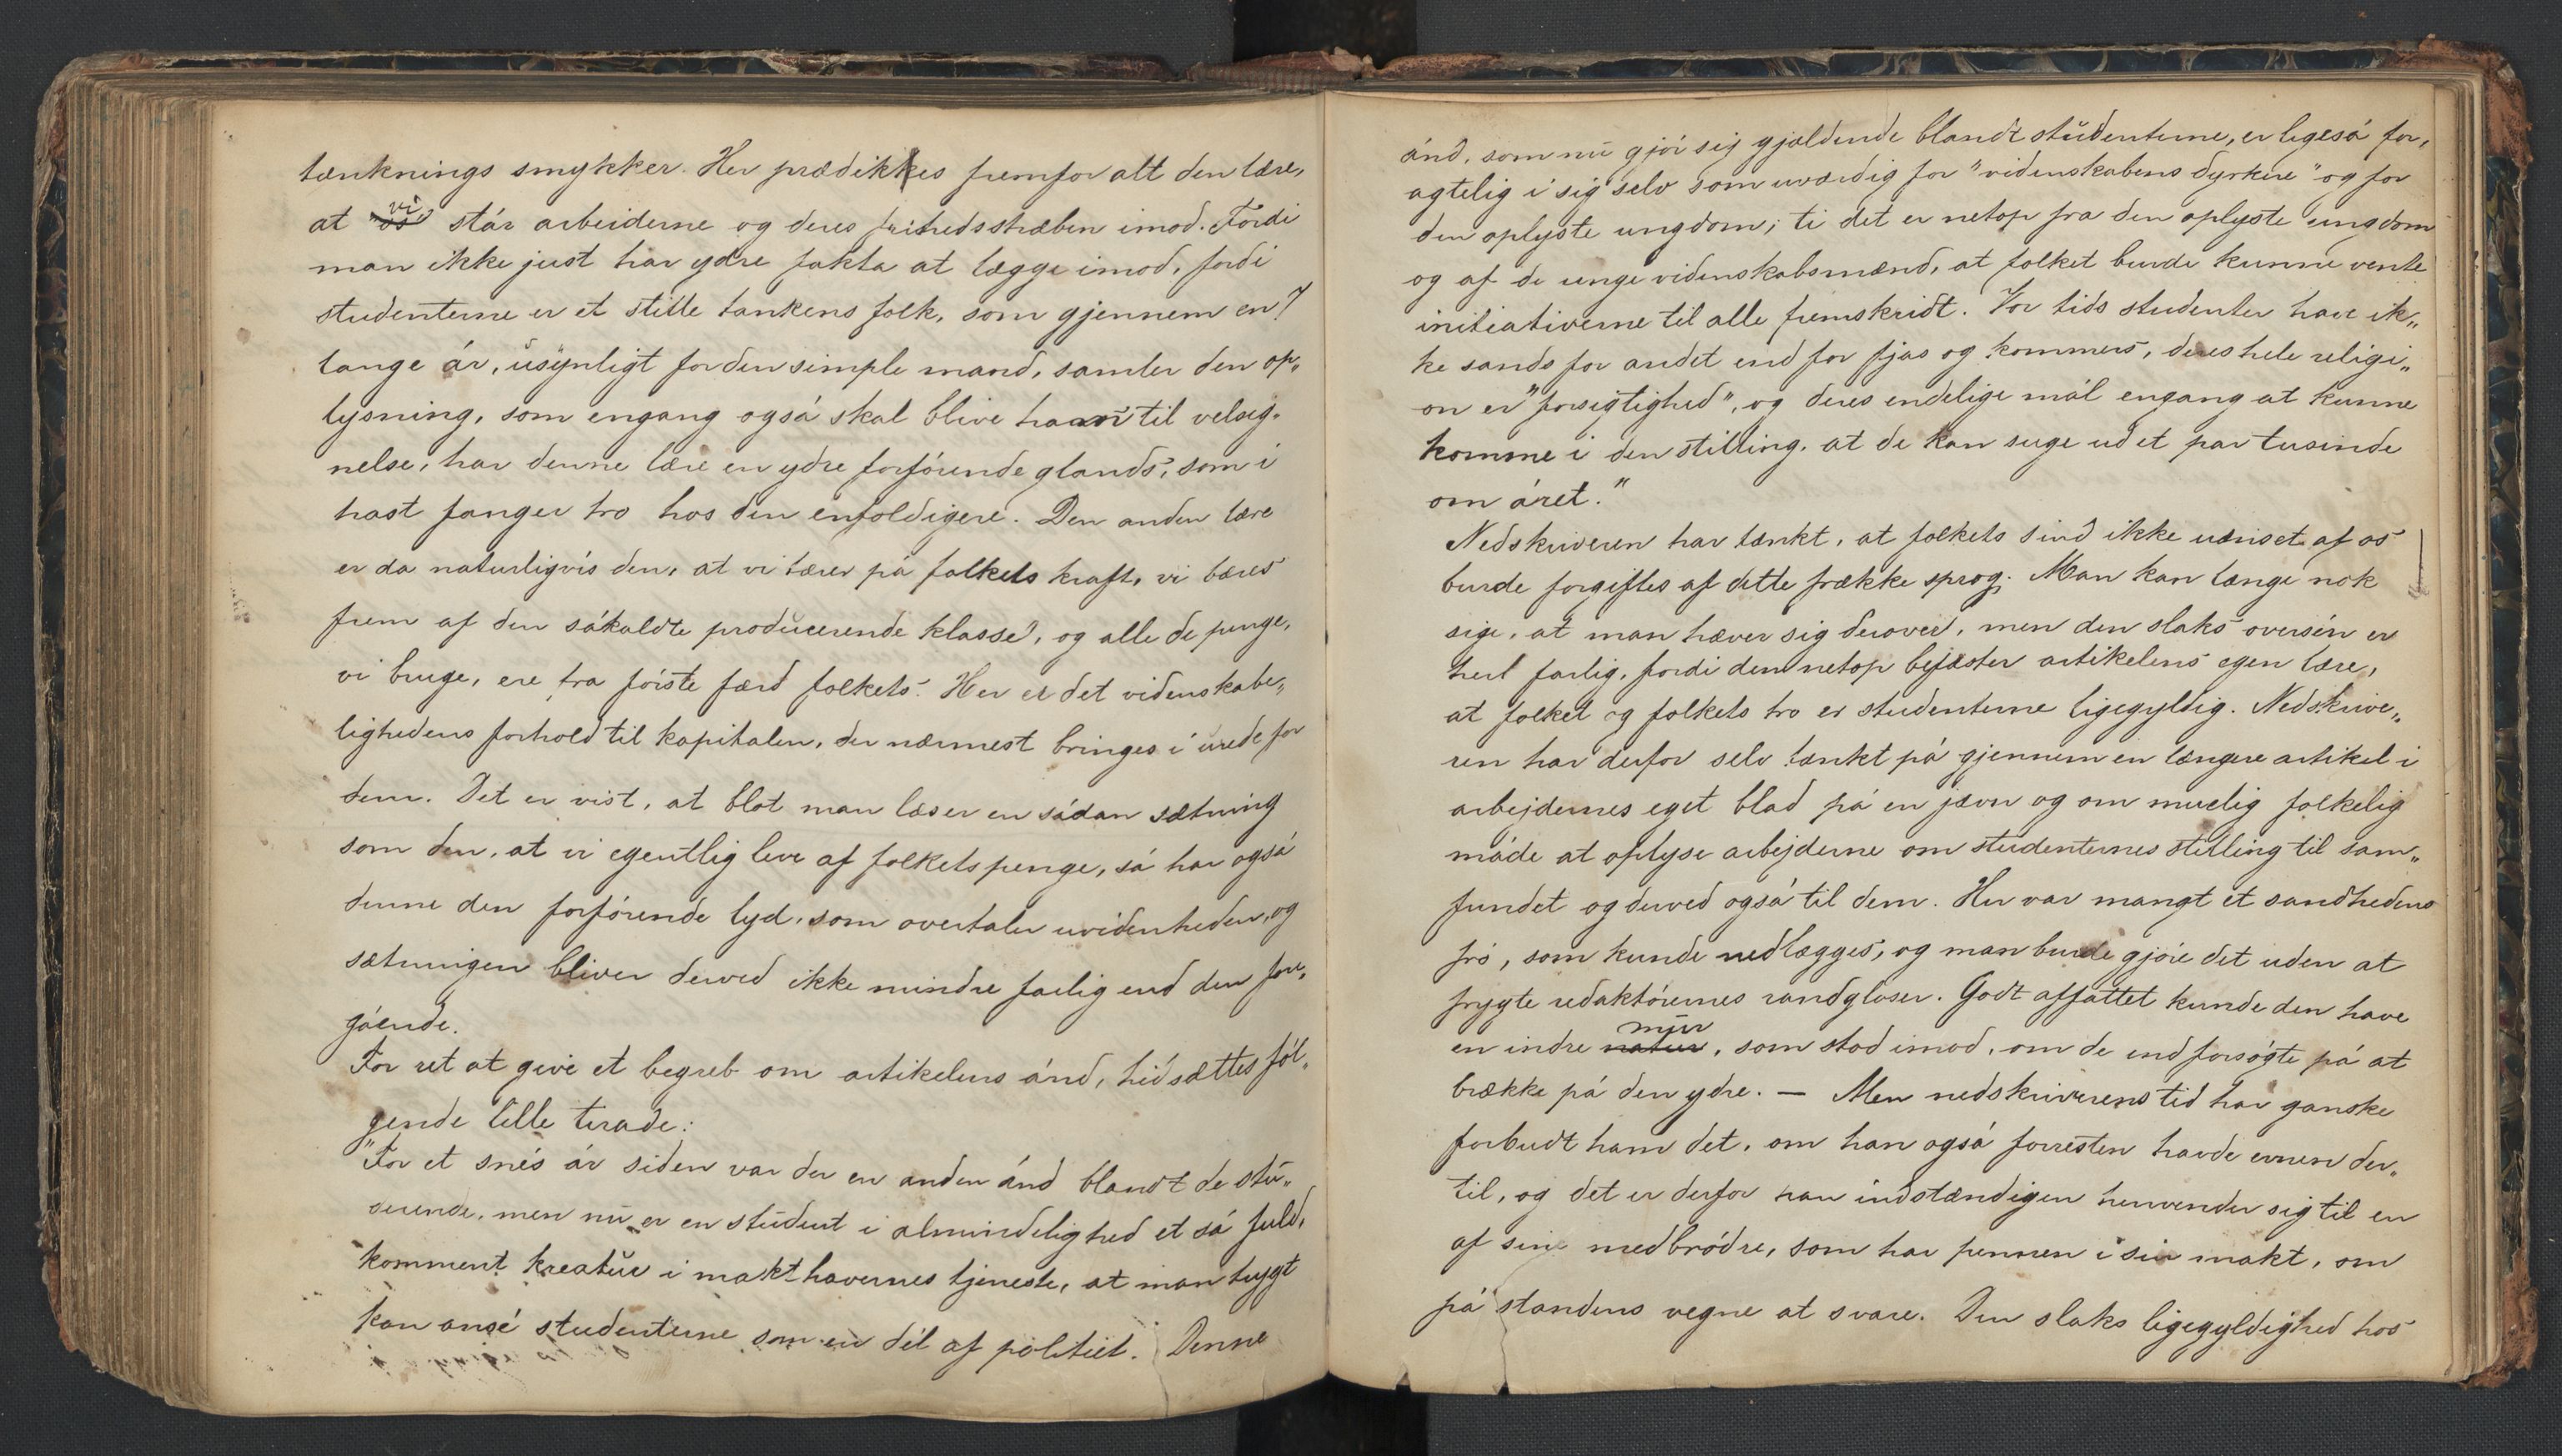 tænknings smykker. Her prædikkes fremfor alt den lære,
at vi står arbeiderne og deres frihedsstræben imod. Fordi
man ikke just har ydre fakta at lægge imod, fordi
studenterne er et stille tankens folk, som gjennem en 7
lange år, usynligt for den simple mand, samler den op„
lysning, som engang også skal blive ham til velsig„
nelse, har denne lære en ydre forførende glands, som i
hast fanger tro hos den enfoldigere. Den anden lære
er da naturligvis den, at vi tærer på folkets kraft, vi bæres
frem af den såkaldte producerende klasse, og alle de penge,
vi bruge, ere fra første færd folkets. Her er det videnskabe„
lighedens forhold til kapitalen, der nærmest bringes i urede for
dem. Det er vist, at blot man læser en sådan sætning
som den, at vi egentlig leve af folkets penge, så har også
denne den forførende lyd, som overtaler uvidenheden, og
sætningen bliver derved ikke mindre farlig end den fore„
gående.
For ret at give et begreb om artikelens ånd, hidsættes føl„
gende lille tirade:
"For et snés år siden var der en anden ånd blandt de stu„
derende, men nu er en student i almindelighed et så fuld„
komment kreatur i makthavernes tjeneste, at man trygt
kan ansé studenterne som en dél af politiet. Denne
ånd, som nu gjør sig gjældende blandt studenterne, er ligeså for„
agtelig i sig selv som uværdig for "videnskabens dyrkere" og for
den oplyste ungdom; ti det er netop fra den oplyste ungdom
og af de unge videnskabsmænd, at folket burde kunne vente
initiativerne til alle fremskridt. Vor tids studenter have ik„
ke sands for andet end for fjas og kommers, deres hele religi„
on er "forsigtighed", og deres endelige mål engang at kunne
komme i den stilling, at de kan suge ud et par tusinde
om året."
Nedskriveren har tænkt, at folkets sind ikke uænset af os
burde forgiftes af dette frække sprog. Man kan længe nok
sige, at man hæver sig derover, men den slaks oversén er
herl farlig, fordi den netop bejæster artikelens egen lære,
at folket og folkets tro er studenterne ligegyldig. Nedskrive„
ren har derfor selv tænkt på gjennem en længere artikel i
arbejdernes eget blad på en jævn og om muelig folkelig
måde at oplyse arbejderne om studenternes stilling til sam„
fundet og derved også til dem. Her var mangt et sandhedens
frø, som kunde nedlægges, og man burde gjøre det uden at
frygte redaktørernes randgloser. Godt affattet kunde den have
en indre natur mur, som stod imod, om de end forsøgte på at
brække på den ydre. — Men nedskriverens tid har ganske
forbudt ham det, om han også forresten havde evnen der„
til, og det er derfor han indstændigen henvender sig til en
af sine medbrødre, som har pennen i sin makt, om
på standens vegne at svare. Den slaks ligegyldighed hos